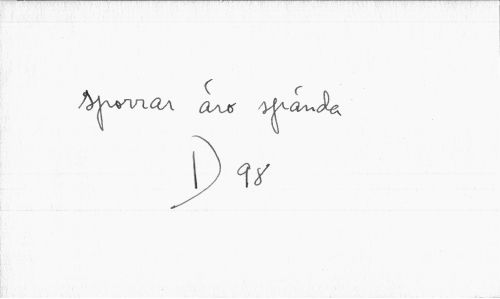 sporrar áro spánda
D 98